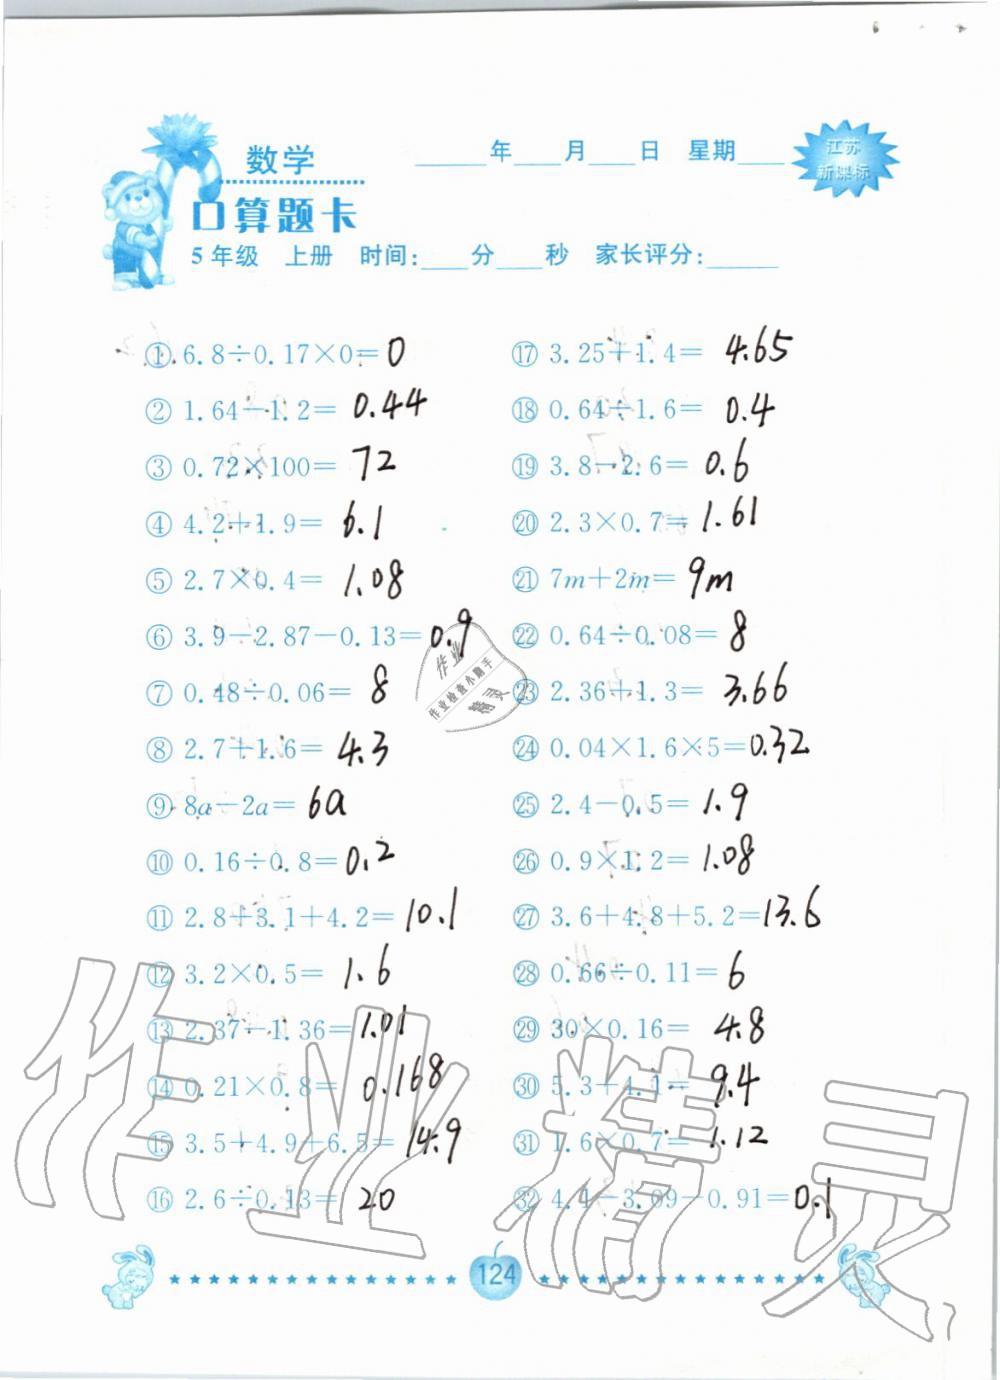 数学
____年____月____日 星期____
江苏
新课标
口算题卡
5年级 上册 时间:____分____秒 家长评分:____
① 6.8÷0.17×0=0
② 1.64-1.2= 0.44
③ 0.72×100= 72
④ 4.2+1.9= 6.1
⑤ 2.7×0.4= 1.08
⑥ 3.9-2.87-0.13=0.9
⑦ 0.48÷0.06= 8
⑧ 2.7+1.6= 4.3
⑨ 8a-2a= 6a
⑩ 0.16÷0.8=0.2
⑪ 2.8+3.1+4.2=10.1
⑫ 3.2×0.5= 1.6
⑬ 2.37-1.36=1.01
⑭ 0.21×0.8= 0.168
⑮ 3.5+4.9+6.5=14.9
⑯ 2.6÷0.13= 20
⑰ 3.25+1.4= 4.65
⑱ 0.64÷1.6= 0.4
⑲ 3.8-2.6= 0.6
⑳ 2.3×0.7= 1.61
㉑ 7m+2m= 9m
㉒ 0.64÷0.08= 8
㉓ 2.36+1.3= 3.66
㉔ 0.04×1.6×5=0.32
㉕ 2.4-0.5= 1.9
㉖ 0.9×1.2= 1.08
㉗ 3.6+4.8+5.2=13.6
㉘ 0.66÷0.11= 6
㉙ 30×0.16= 4.8
㉚ 5.3+4.1= 9.4
㉛ 1.6×0.7= 1.12
㉜ 4.1-3.09-0.91=0.1
124
作业
作业检查小助手
精灵
作业精灵